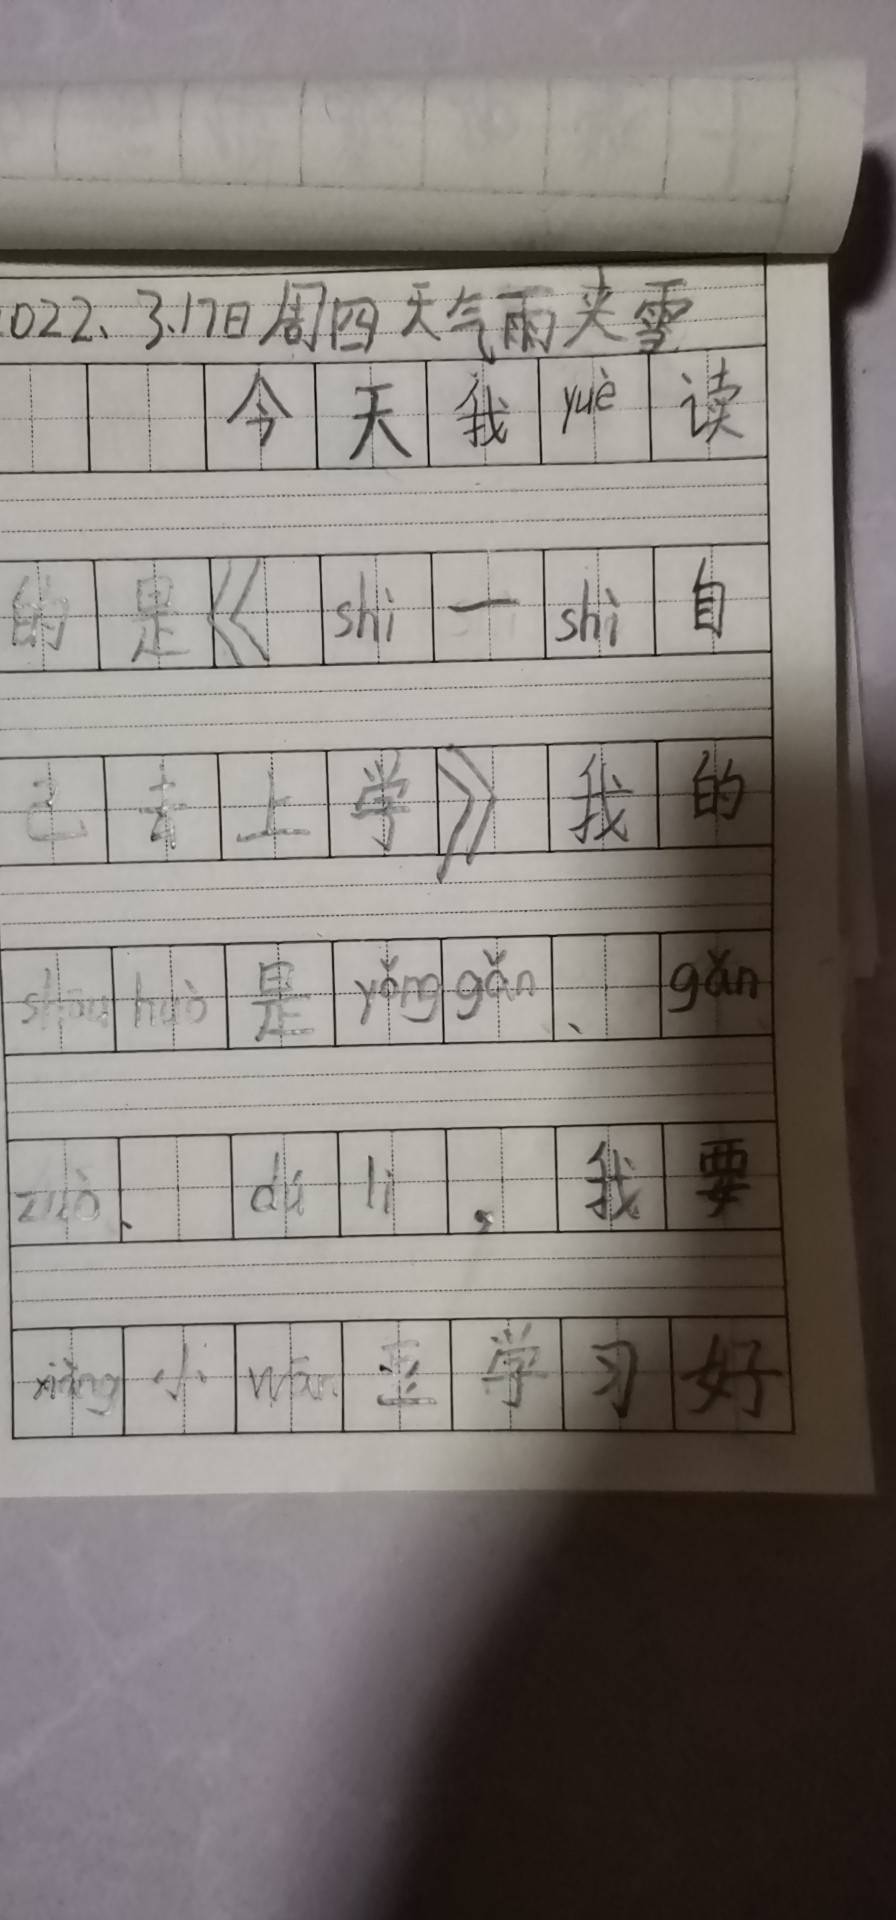 2022、3.17日周四天气雨夹雪
今天我yuè读
的是《shì一shì自
己去上学》我的
shōu huò是yǒng gǎn、gǎn
zuò、dú lì，我要
xiàng小wān豆学习好